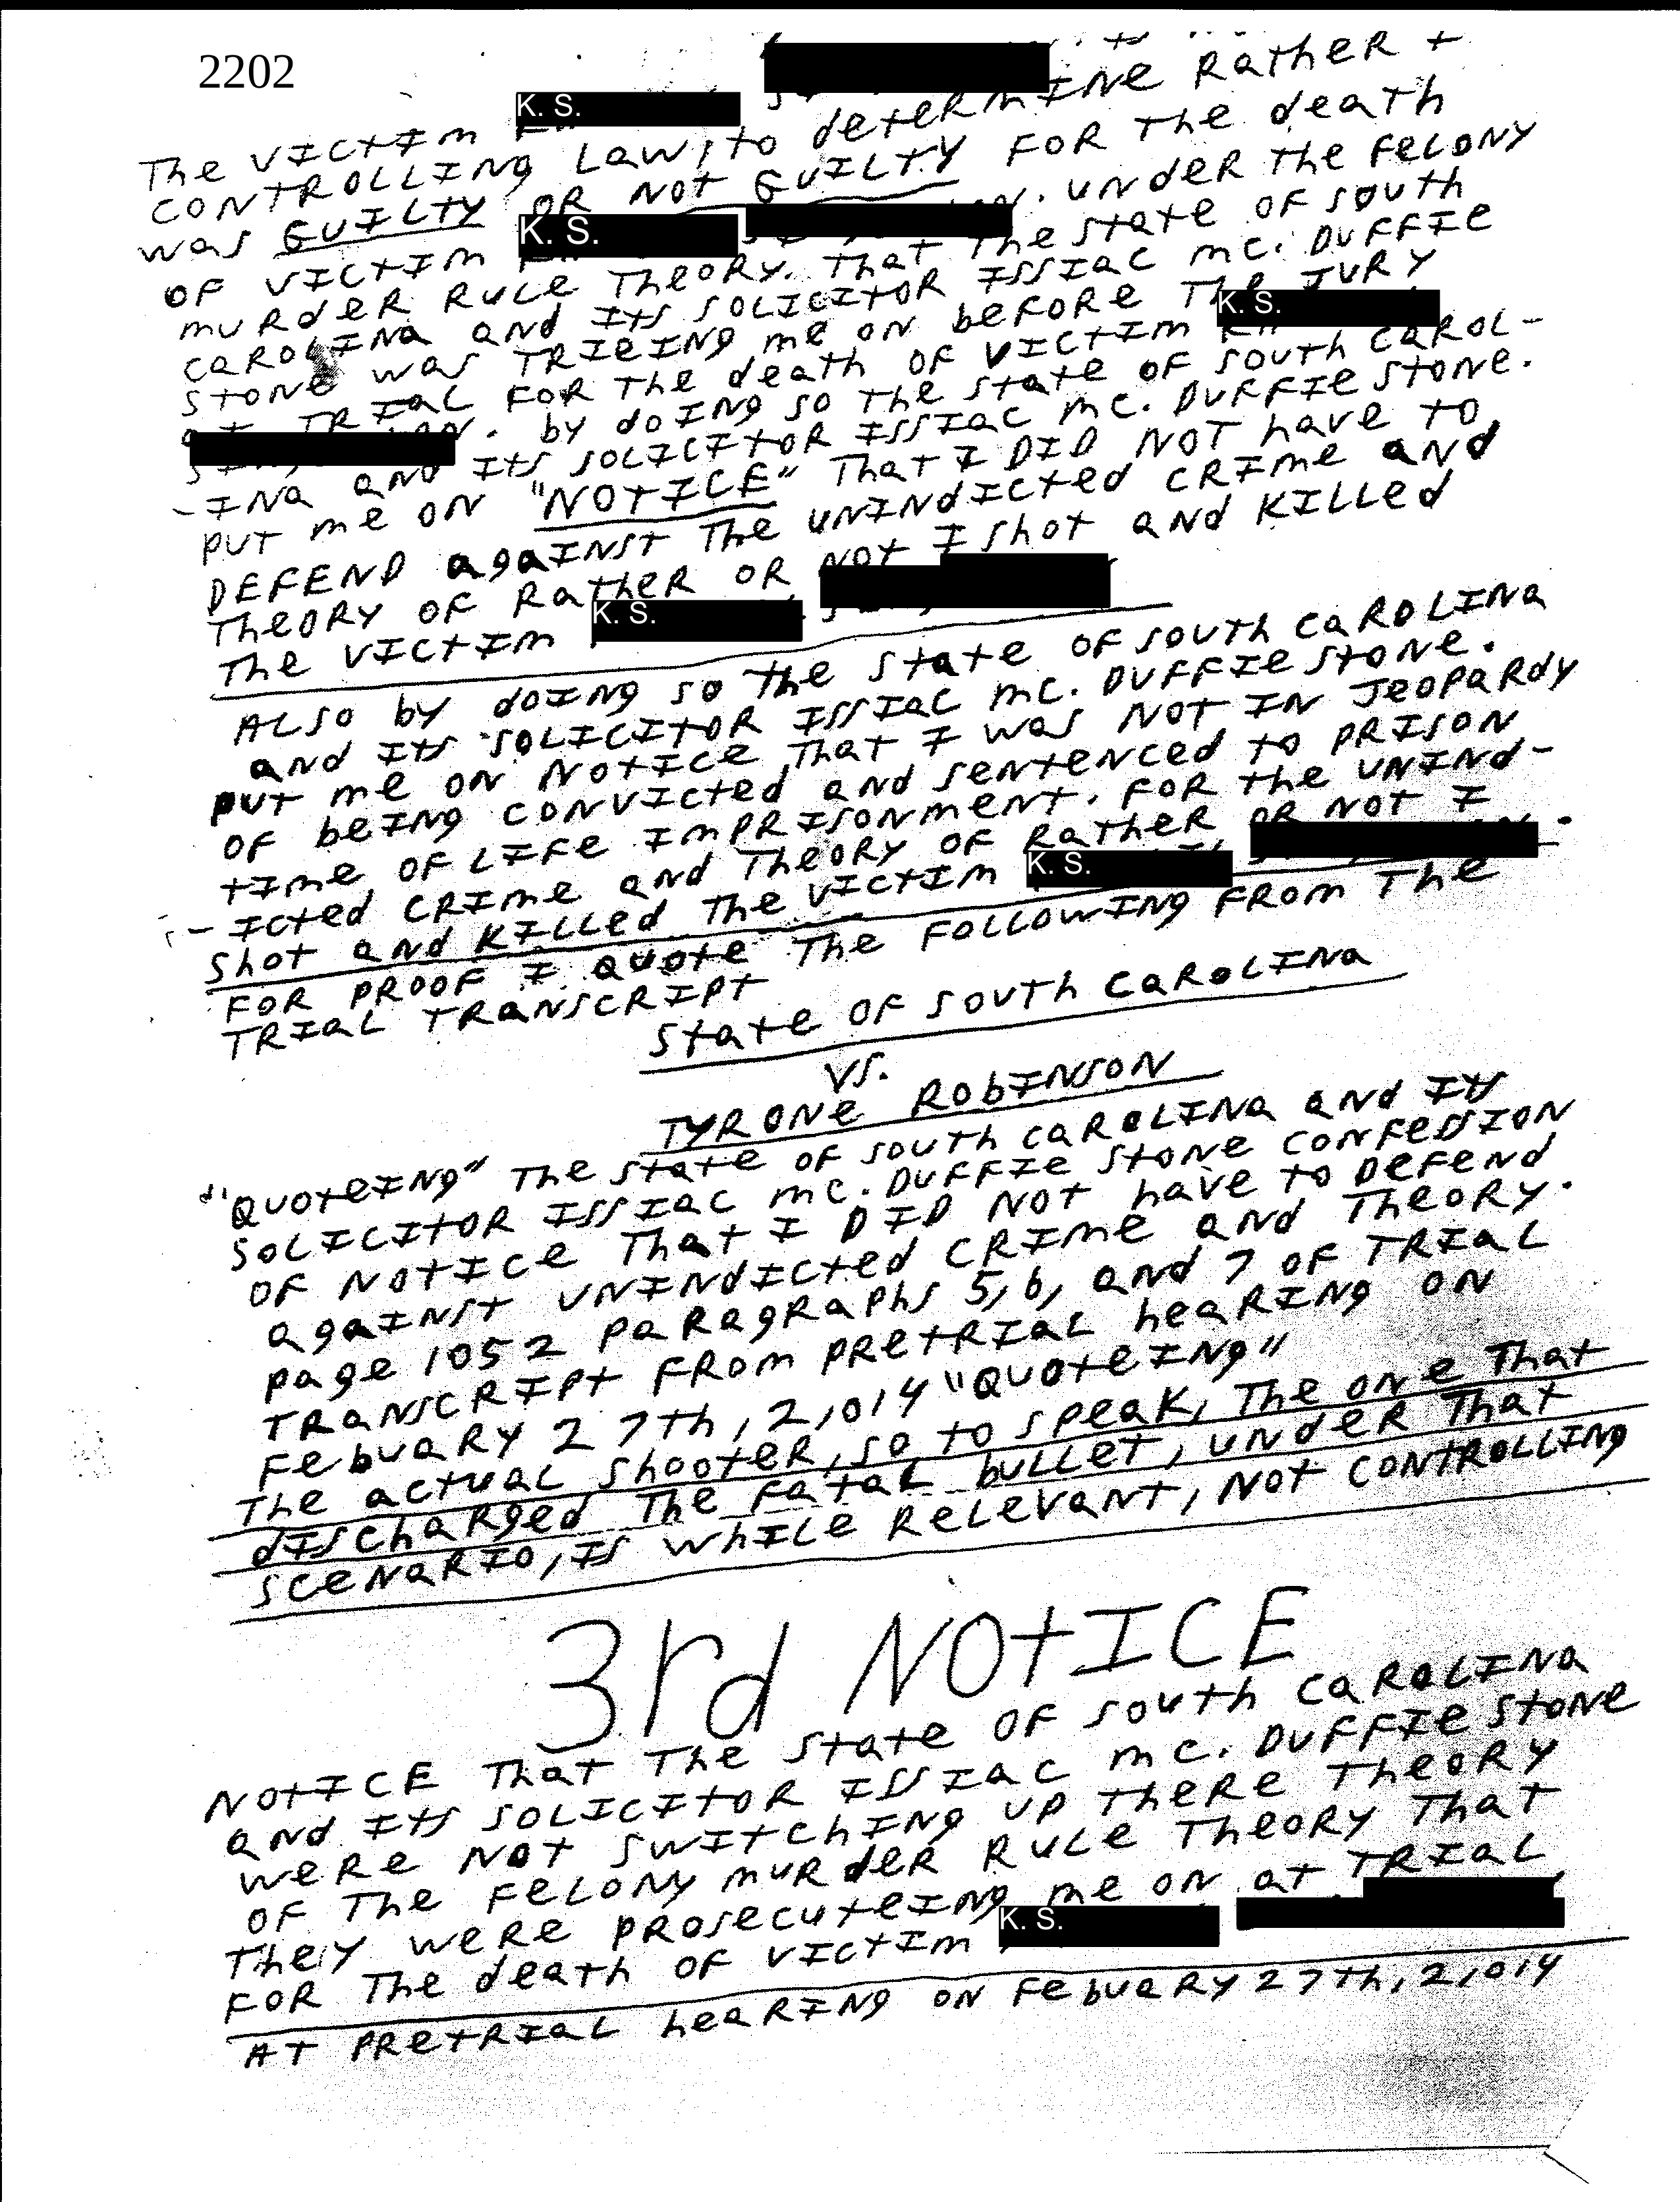 2202
The VICTIM K. S.
CONTROLLING LAW, to determine Rather I
was GUILTY OR NOT GUILTY FOR The death
OF VICTIM K. S. under the FELONY
murder RULE Theory. That the State OF South
CAROLINA and Its SOLICITOR ISSIAC mc. DUFFIE
STONE was TRIEING me on before The JURY
at TRIAL FOR The death OF VICTIM K. S.
by doING so The State OF South CAROL-
-INA and Its SOLICITOR ISSIAC mc. DUFFIE STONE.
put me ON "NOTICE" That I DID NOT have to
DEFEND agaINST The UNINDICTED CRIME and
Theory OF Rather OR NOT I shot and KILLed
The VICTIM K. S.
ALSO by doING so The State OF South CAROLINA
and Its SOLICITOR ISSIAC mc. DUFFIE STONE.
put me ON NOTICE That I was NOT IN Jeopardy
OF beING CONVICTed and sentenced to PRISON
tIme OF LIFE ImPRISONMENT. FOR the UNIND-
-Icted CRIME and Theory OF Rather OR NOT I
Shot and KILLed The VICTIM K. S.
FOR PROOF I quote The FOLLOWING FROM The
TRIAL TRANSCRIPT
State OF South CAROLINA
VS.
TYRONE RobINSON
"QUOTeING" The State OF South CAROLINA and Its
SOLICITOR ISSIAC mc. DUFFIE STONE CONFESSION
OF NOTICE That I DID NOT have to Defend
agaINST UNINDICTED CRIME and Theory.
page 1052 paragraphs 5, 6, and 7 OF TRIAL
TRANSCRIPT FROM PRETRIAL heARING ON
Febuary 27th, 2,014 "QUOTeING"
The actual Shooter, so to speak, The one That
dIScharged The Fatal bullet, under That
SCENARIO, IS while Relevant, Not CONTROLLING
3rd NOTICE
NOTICE That The State OF South CAROLINA
and Its SOLICITOR ISSIAC mc. DUFFIE STONE
were NOT SWITchING UP There Theory
OF The FELONY murder RULE Theory That
They were prosecuteING me on at TRIAL
FOR The death OF VICTIM K. S.
AT PRETRIAL heARING ON Febuary 27th, 2,014